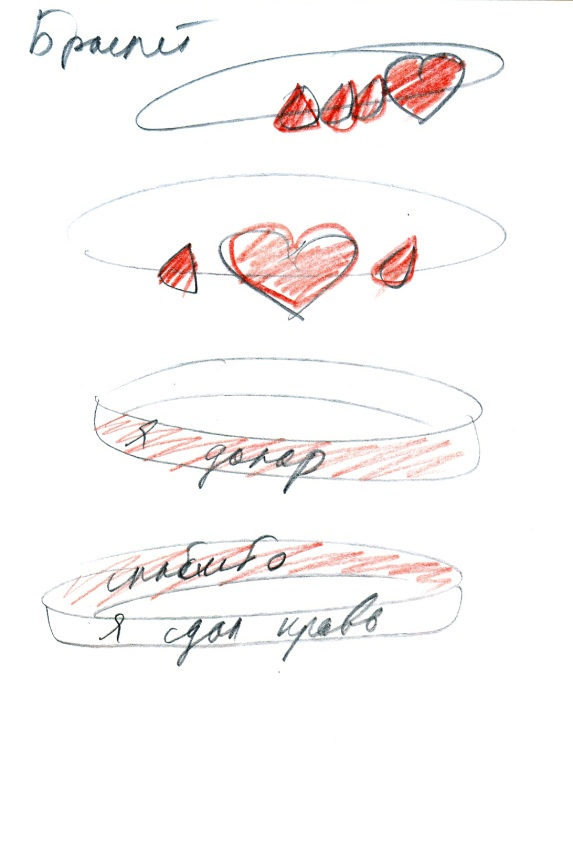 Браслет
я донор
спасибо
я сдал кровь